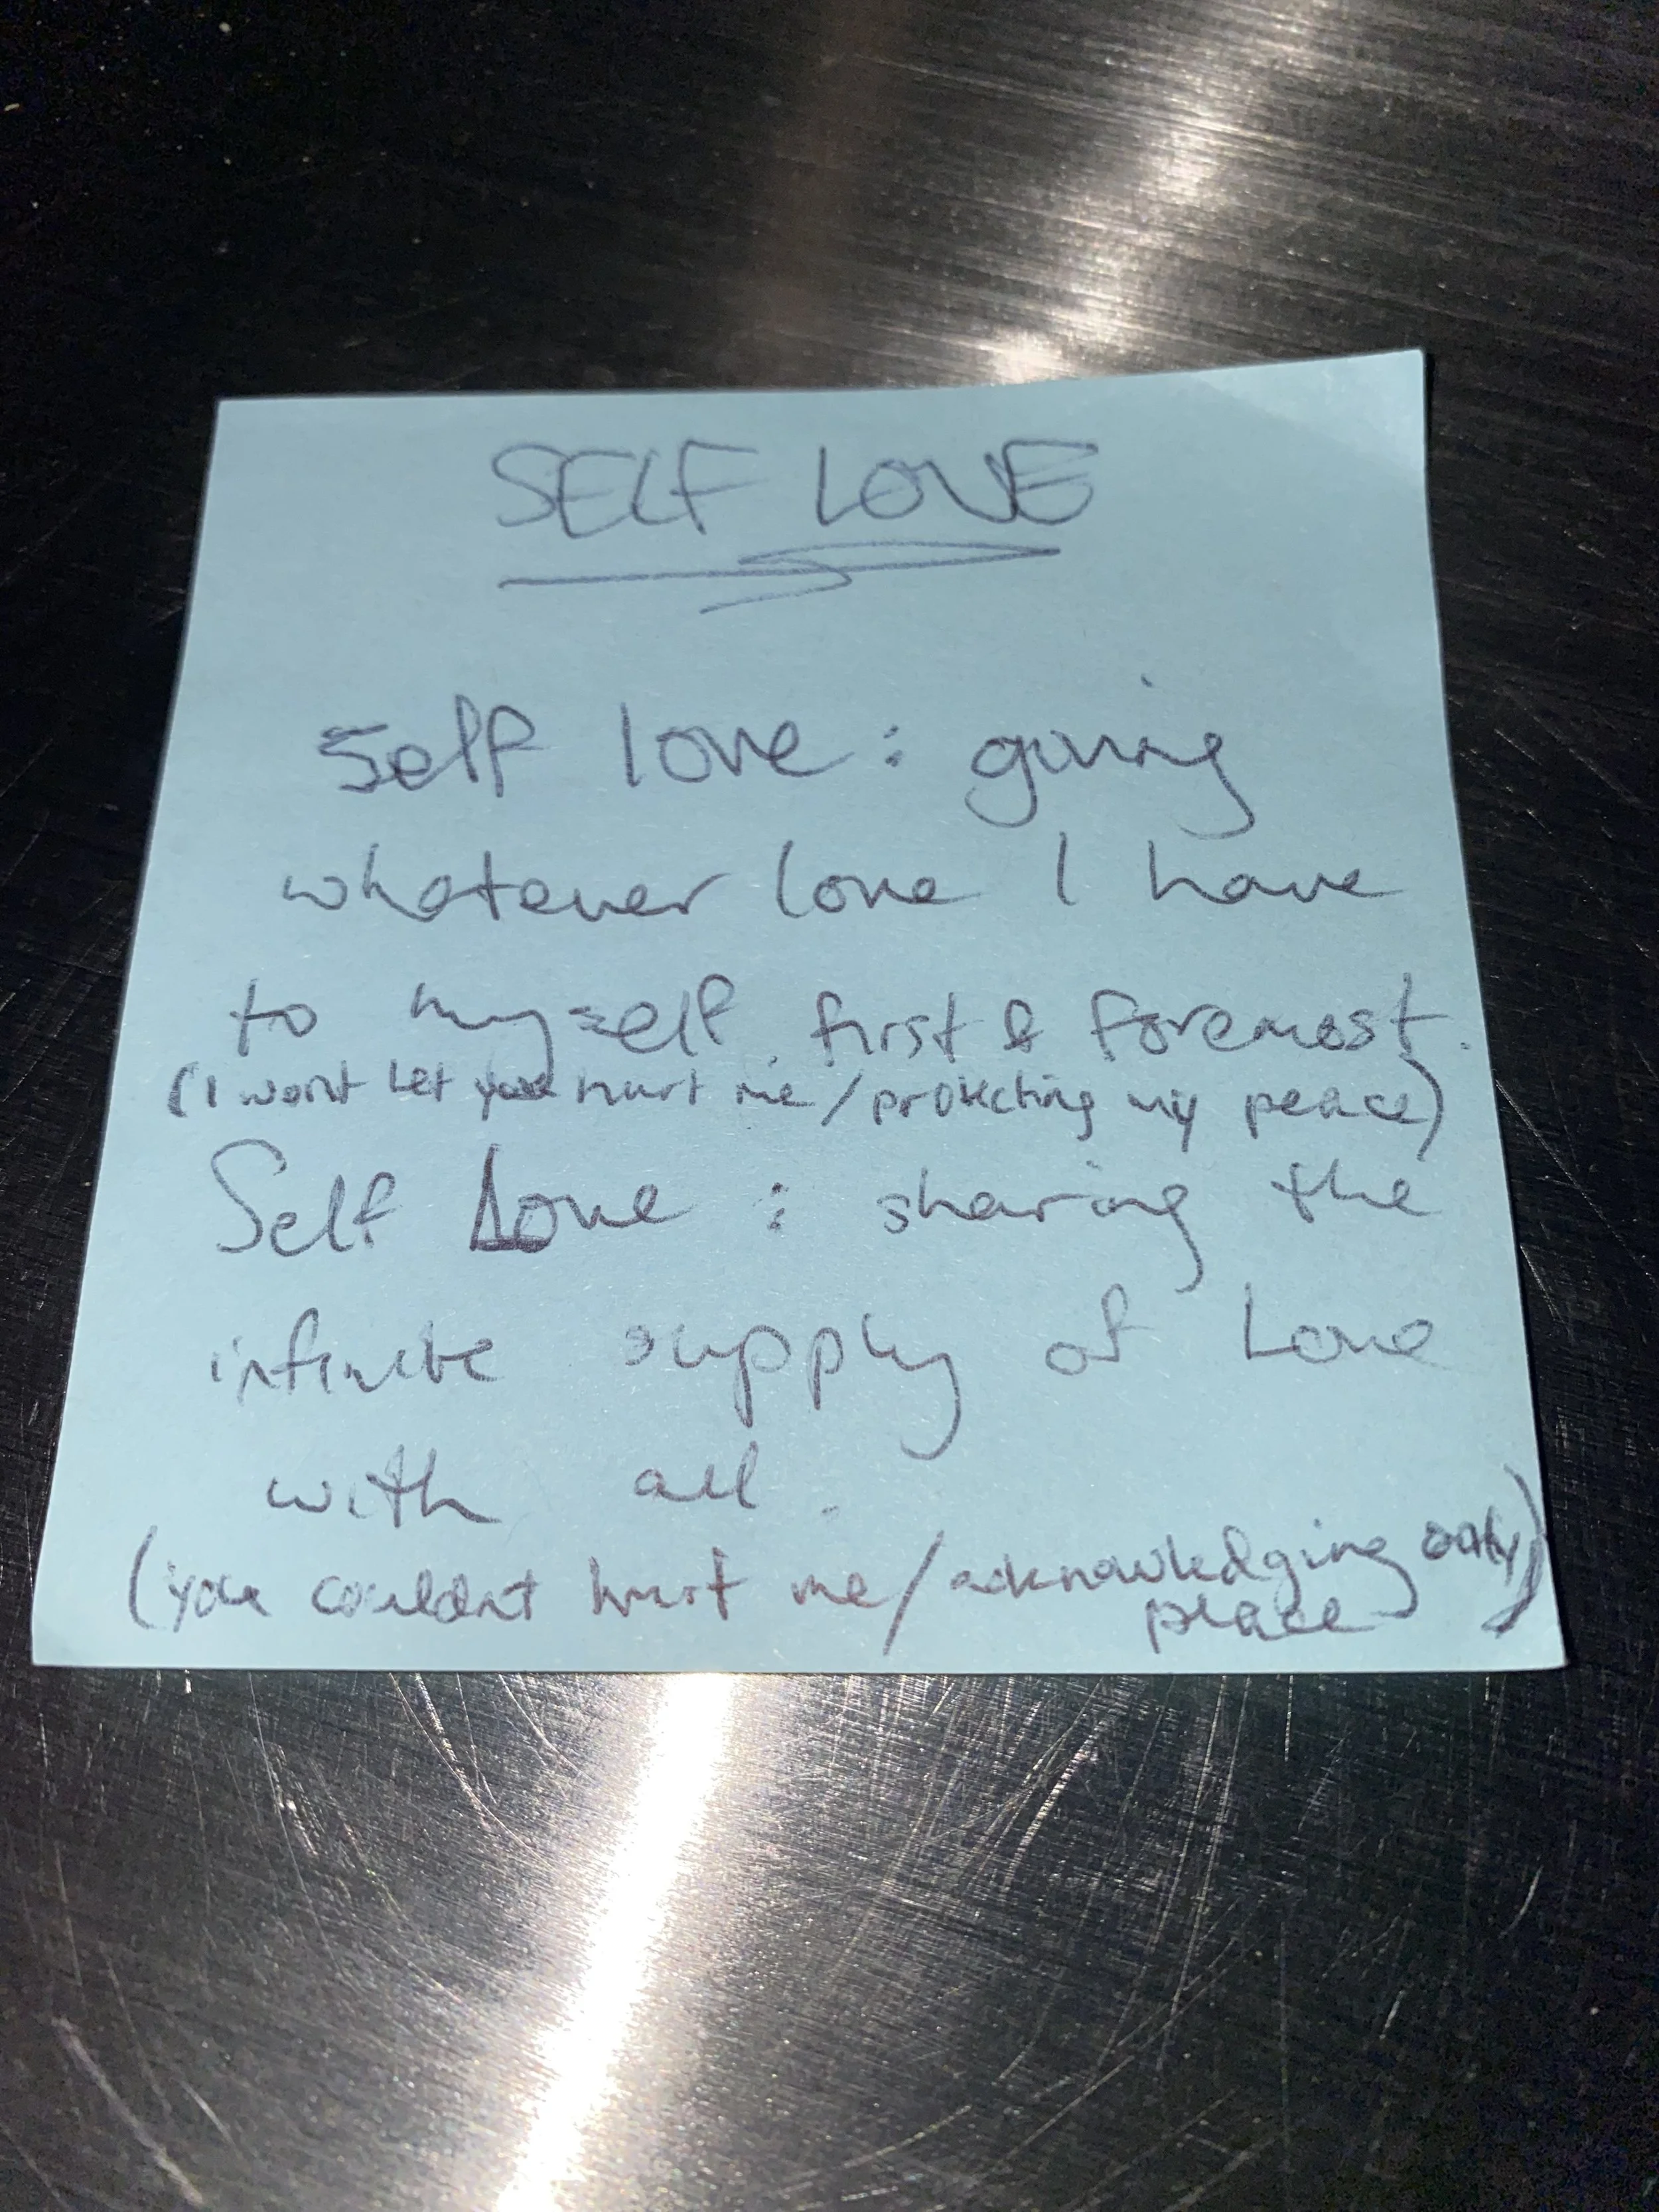 SELF LOVE
self love : giving
whatever love I have
to myself first & foremost.
(I wont let you hurt me/protecting my peace)
Self Love : sharing the
infinite supply of Love
with all.
(you couldnt hurt me/acknowledging only
peace)